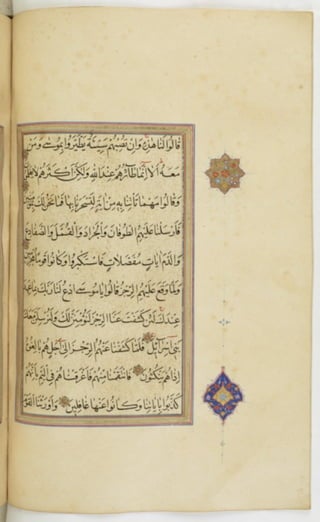 قَالُوا لَنَا هٰذِهِ وَاِنْ تُصِبْهُمْ سَيِّئَةٌ يَطَّيَّرُوا بِمُوسٰى وَمَنْ
مَعَهُ اَلَا اِنَّمَا طَائِرُهُمْ عِنْدَ اللهِ وَلٰكِنَّ اَكْثَرَهُمْ لَا يَعْلَمُونَ
وَقَالُوا مَهْمَا تَأْتِنَا بِهِ مِنْ اٰيَةٍ لِتَسْحَرَنَا بِهَا فَمَا نَحْنُ لَكَ بِمُؤْمِنِينَ
فَاَرْسَلْنَا عَلَيْهِمُ الطُّوفَانَ وَالْجَرَادَ وَالْقُمَّلَ وَالضَّفَادِعَ
وَالدَّمَ اٰيَاتٍ مُفَصَّلَاتٍ فَاسْتَكْبَرُوا وَكَانُوا قَوْمًا مُجْرِمِينَ
وَلَمَّا وَقَعَ عَلَيْهِمُ الرِّجْزُ قَالُوا يَا مُوسَى ادْعُ لَنَا رَبَّكَ بِمَا عَهِدَ
عِنْدَكَ لَئِنْ كَشَفْتَ عَنَّا الرِّجْزَ لَنُؤْمِنَنَّ لَكَ وَلَنُرْسِلَنَّ مَعَكَ
بَنِي اِسْرَائِيلَ فَلَمَّا كَشَفْنَا عَنْهُمُ الرِّجْزَ اِلٰى اَجَلٍ هُمْ بَالِغُوهُ
اِذَا هُمْ يَنْكُثُونَ فَانْتَقَمْنَا مِنْهُمْ فَاَغْرَقْنَاهُمْ فِي الْيَمِّ بِاَنَّهُمْ
كَذَّبُوا بِاٰيَاتِنَا وَكَانُوا عَنْهَا غَافِلِينَ وَاَوْرَثْنَا الْقَوْمَ